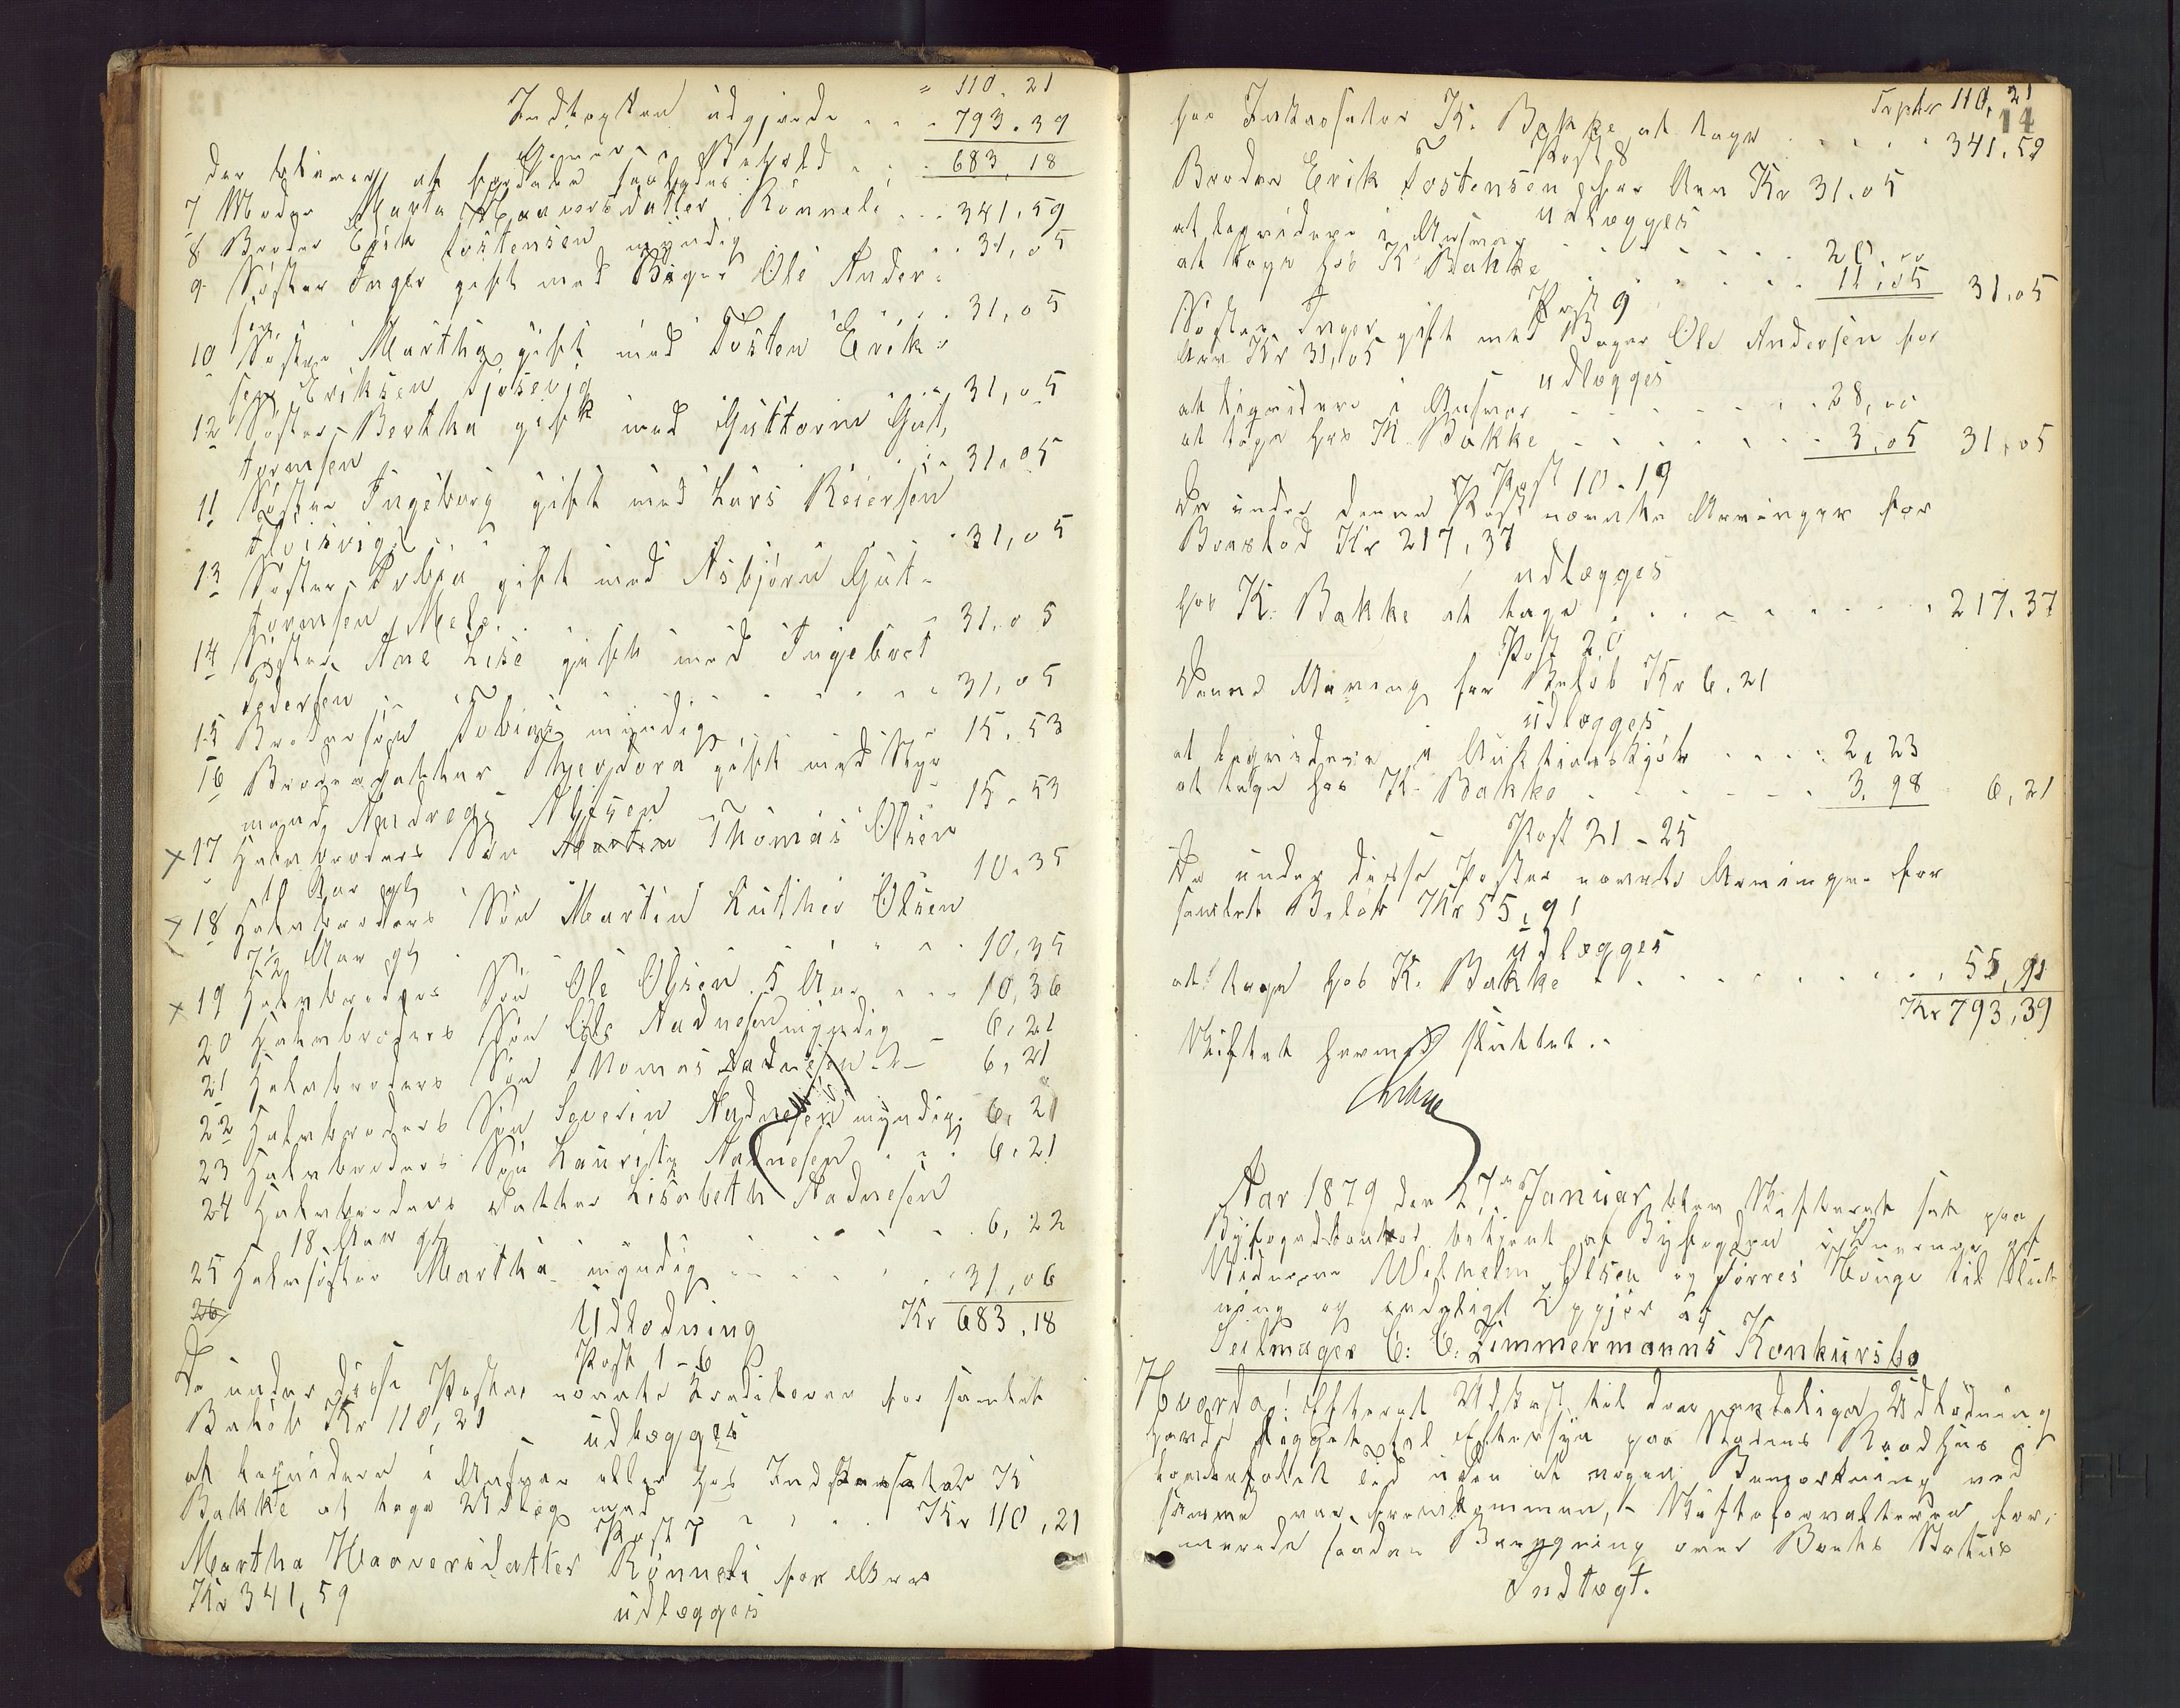 = 110. 21
Indtægten udgjorde . . . 793. 39
Beholdn . . . 683, 18
der bliver at fordele saaledes:
7 Moder Marta Haaversdatter Rönneli . . . 341,59
8 Broder Erik Tostensen myndig . . 31,05
9 Söster Inger gift med Bager Ole Ander-
sen . . . 31,05
10 Söster Martha gift med Tosten Erik-
sen Eriksen Tjosevig . . . 31,05
12 Söster Bertha gift med Guttorm Gut,
tormsen . . . 31,05
11 Söster Ingeborg gift med Lars Reiersen
. . . 31,05
13 Söster gift med Asbjörn Gut-
tormsen Mele . . . 31,05
14 Söster Ane Lise gift med Ingebret
Pedersen . . . 31,05
15 Brodersön Tobias myndig . . . 15,53
16 Broderdatter Theodora gift med Styr
mand Andreas . . . 15-53
17 Halvbroders Sön Martin Thomas Olsen
10 Aar gl . . . 10.35
18 Halvbroders Sön Martin Luther Olsen
7½ Aar gl . . . 10,35
19 Halvbroders Sön Ole Olsen 5 Aar . . . 10,36
20 Halvbroders Sön Ole Aadnesen myndig 6,21
21 Halvbroders Sön Thomas Aadnesen -"- 6,21
22 Halvbroders Sön Severin Aadnesen myndig. 6,21
23 Halvbroders Sön Lauritz Aadnesen . . . 6,21
24 Halvbroders Datter Lisabeth Aadnesen
18 Aar gl . . . 6,22
25 Halvsöster Martha myndig . . . 31,06
26 Kr 683,18
Udlodning
Post 1-6
De under disse Poster nævnte Kreditorer for samlet
Belöb Kr 110,21
udlægges
at liqvidere i Masser eller hos Indkassator K
Bakke at tage Udlæg med . . . Kr 110,21
Post 7
Martha Haaversdatter Rönneli for Arv
Kr 341,59
udlægges
Trpter 110,21
14
hos Inkassator K. Bakke at tage . . . . . 341.59
Post 8
Broder Erik Tostensen for Arv Kr 31.05
udlægges
at liqvidere i Masser . . . 20.00
at tage hos K Bakke . . . 11,05 31,05
Post 9
Söster Inger gift med Bager Ole Andersen for
Arv Kr 31,05
udlægges
at liqvidere i Masser . . . 28,00
at tage hos K. Bakke . . . 3,05 31,05
Post 10-19
De under denne Post nævnte Arvinger for
Broslod Kr 217,37
udlægges
hos K. Bakke at tage . . . 217.37
Post 20
Denne Arving for Belöb Kr 6.21
udlægges
at liqvidere i Auktionskjöb . . . 2,23
at tage hos K. Bakke . . . 3.98 6,21
Post 21-25
De under disse Poster nævnte Arvinger for
samlet Belöb Kr 55,91
udlægges
at tage hos K. Bakke . . . 55,91
Kr 793,39
Skiftet hermed sluttet.-
Aar 1879 den 27de Januar blev Skifteret sat paa
Byfogedkontoret betjent af Byfogden i Overvær af
Vidnerne Wilhelm Olsen og Törres Hauge til Slut
ning og endeligt Opgjör af
Seilmager C. C. Zimmermanns Konkursbo
Hvorda! Efterat Udkast til den endelige Udlodning
havde ligget til Eftersyn paa Stadens Raadhus i
lovbefalet Tid uden at nogen Bemærkning ved
samme var fremkommen, - Skifteforvalteren for,
merede saadan Beregning over Boets Status
Indtægt.